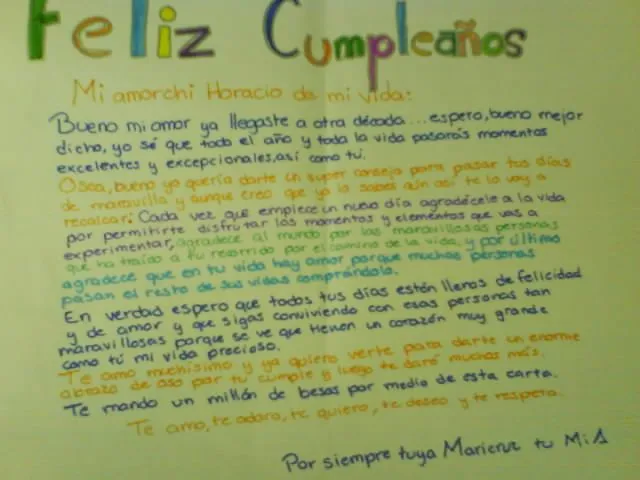 Feliz Cumpleaños
Mi amorchi Horacio de mi vida:
Bueno mi amor ya llegaste a otra década...espero, bueno mejor
dicho, yo sé que todo el año y toda la vida pasarás momentos
excelentes y excepcionales, así como tú.
Osea, bueno yo quería darte un super consejo para pasar tus días
de maravilla y aunque creo que ya lo sabes aún así te lo voy a
recalcar: Cada vez que empiece un nuevo día agradécele a la vida
por permitirte disfrutar los momentos y elementos que vas a
experimentar, agradece al mundo por las maravillosas personas
que ha traído a tu recorrido por el camino de la vida, y por último
agradece que en tu vida hay amor porque muchas personas
pasan el resto de sus vidas comprándolo.
En verdad espero que todos tus días estén llenos de felicidad
y de amor y que sigas conviviendo con esas personas tan
maravillosas porque se ve que tienen un corazón muy grande
como tú mi vida precioso.
Te amo muchísimo y ya quiero verte para darte un enorme
abrazo de oso por tu cumple y luego te daré muchos más.
Te mando un millón de besos por medio de esta carta.
Te amo, te adoro, te quiero, te deseo y te respeto.
Por siempre tuya Maricruz tu M i A